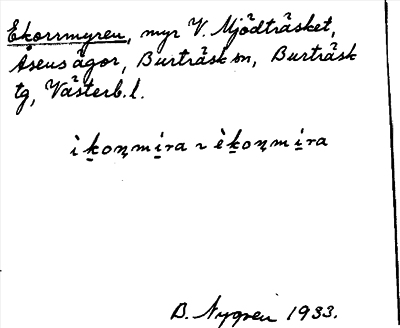 Ekorrmyren, myr V. Mjödträsket,
Åsens ägor, Burträsk sn, Burträsk
tg, Västerb. l.
ìkoṇmi̱ra ~ èkoṇmi̱ra
B. Nygren 1933.